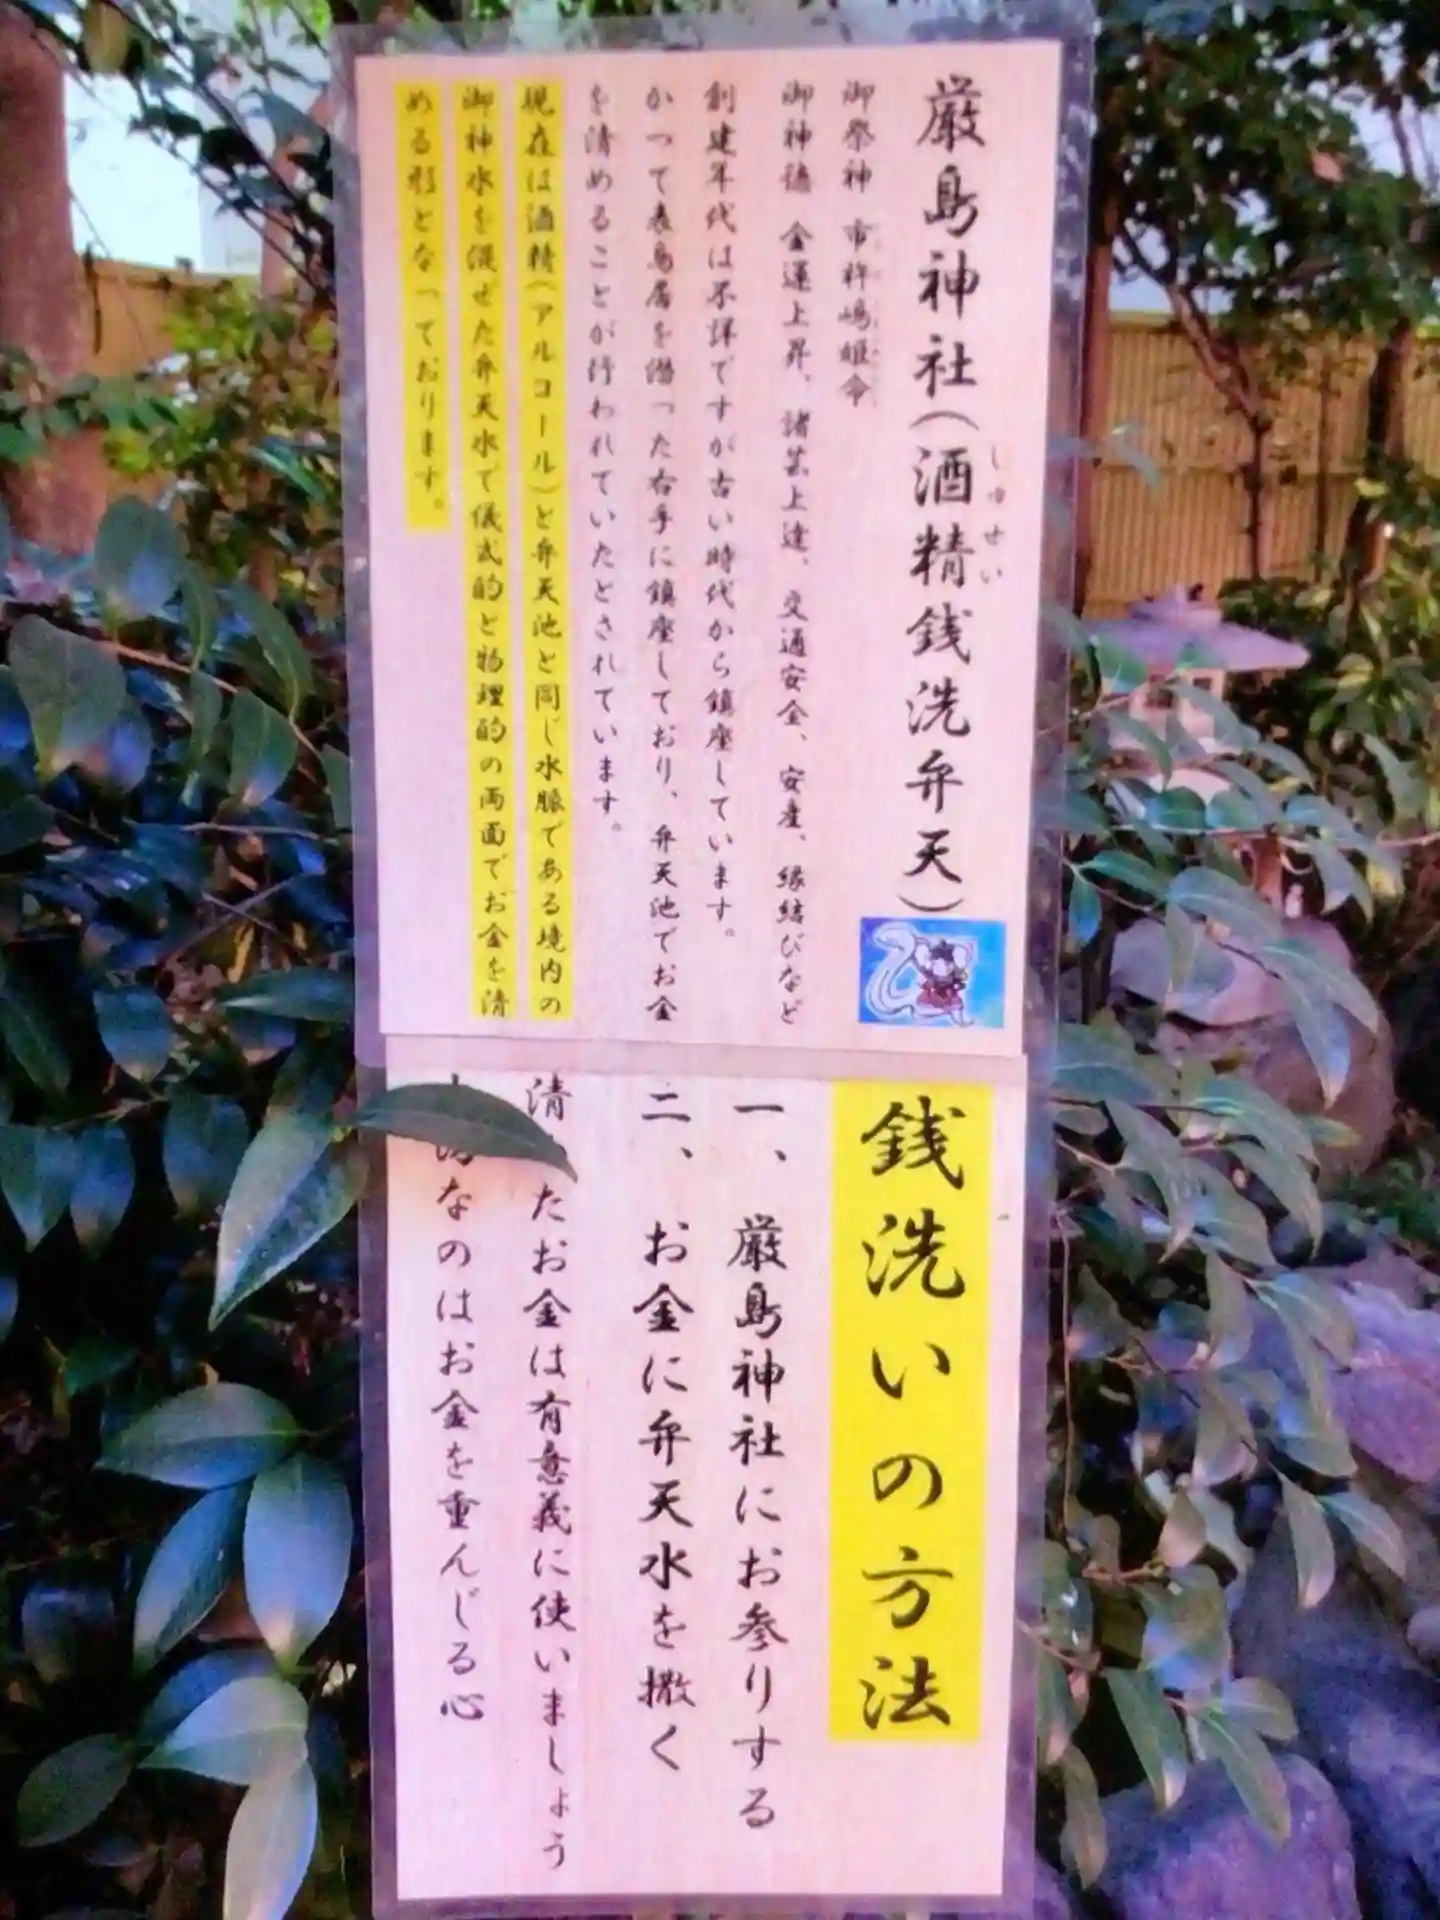 厳島神社（酒精銭洗弁天）
しゅせい
御祭神 市杵嶋姫命
御神徳 金運上昇、諸芸上達、交通安全、安産、縁結びなど
創建年代は不詳ですが古い時代から鎮座しています。
かつて表鳥居を潜った右手に鎮座しており、弁天池でお金
を清めることが行われていたとされています。
現在は酒精（アルコール）と弁天池と同じ水脈である境内の
御神水を混ぜた弁天水で儀式的と物理的の両面でお金を清
める形となっております。
銭洗いの方法
一、厳島神社にお参りする
二、お金に弁天水を撒く
清 たお金は有意義に使いましょう
なのはお金を重んじる心